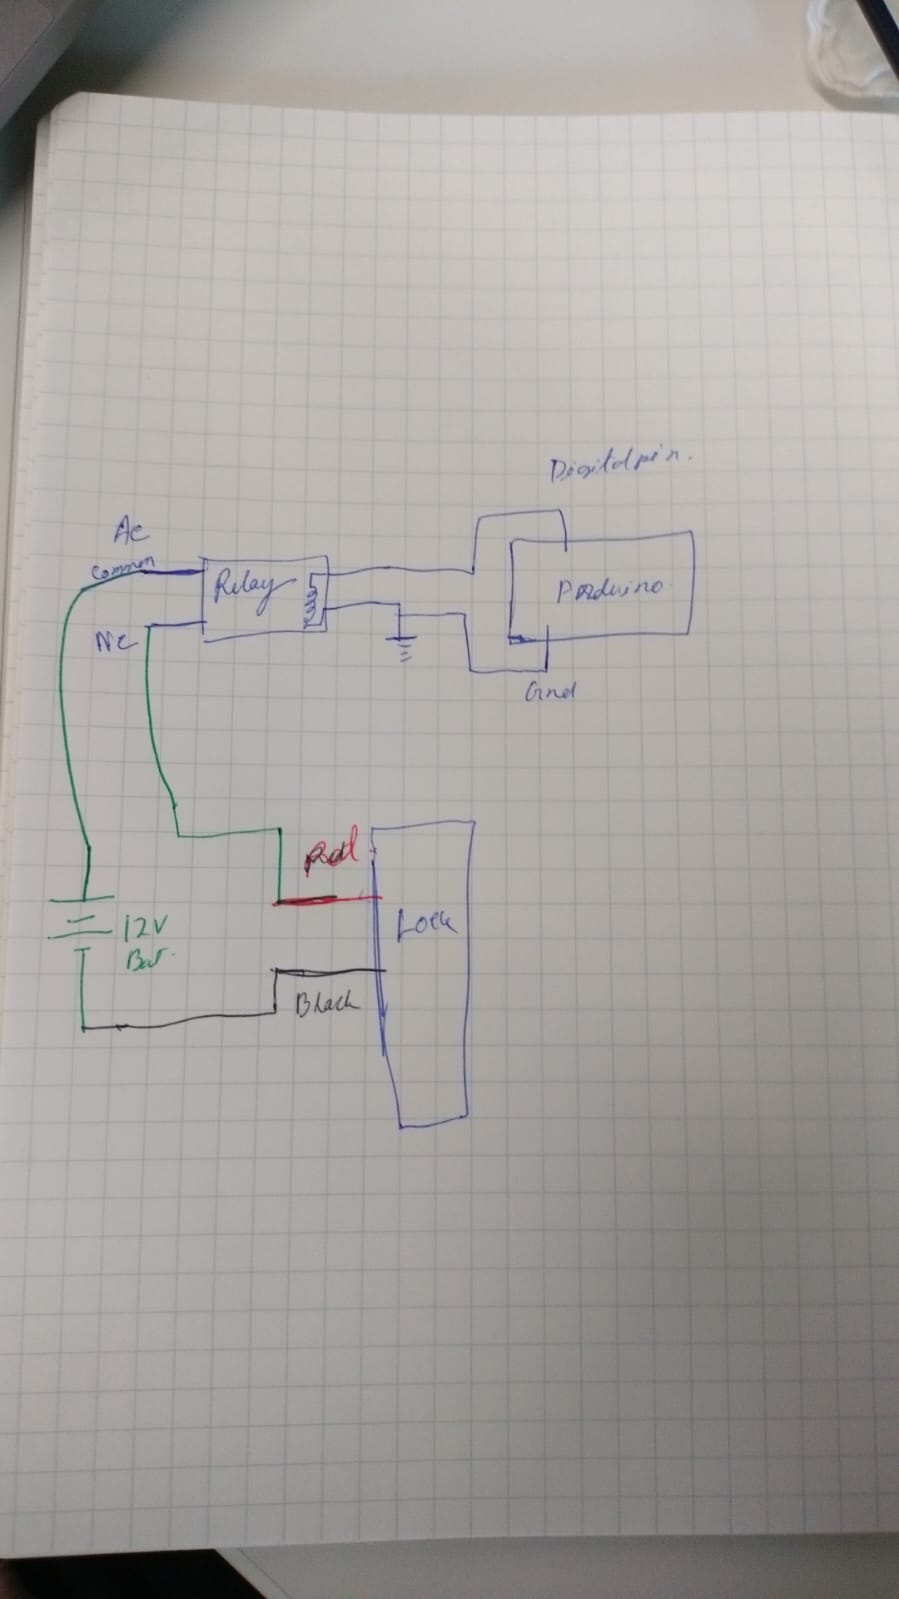 Digital pin.
Ac
Common
Relay
Arduino
NC
Gnd
Red
Lock
12V
Bat.
Black